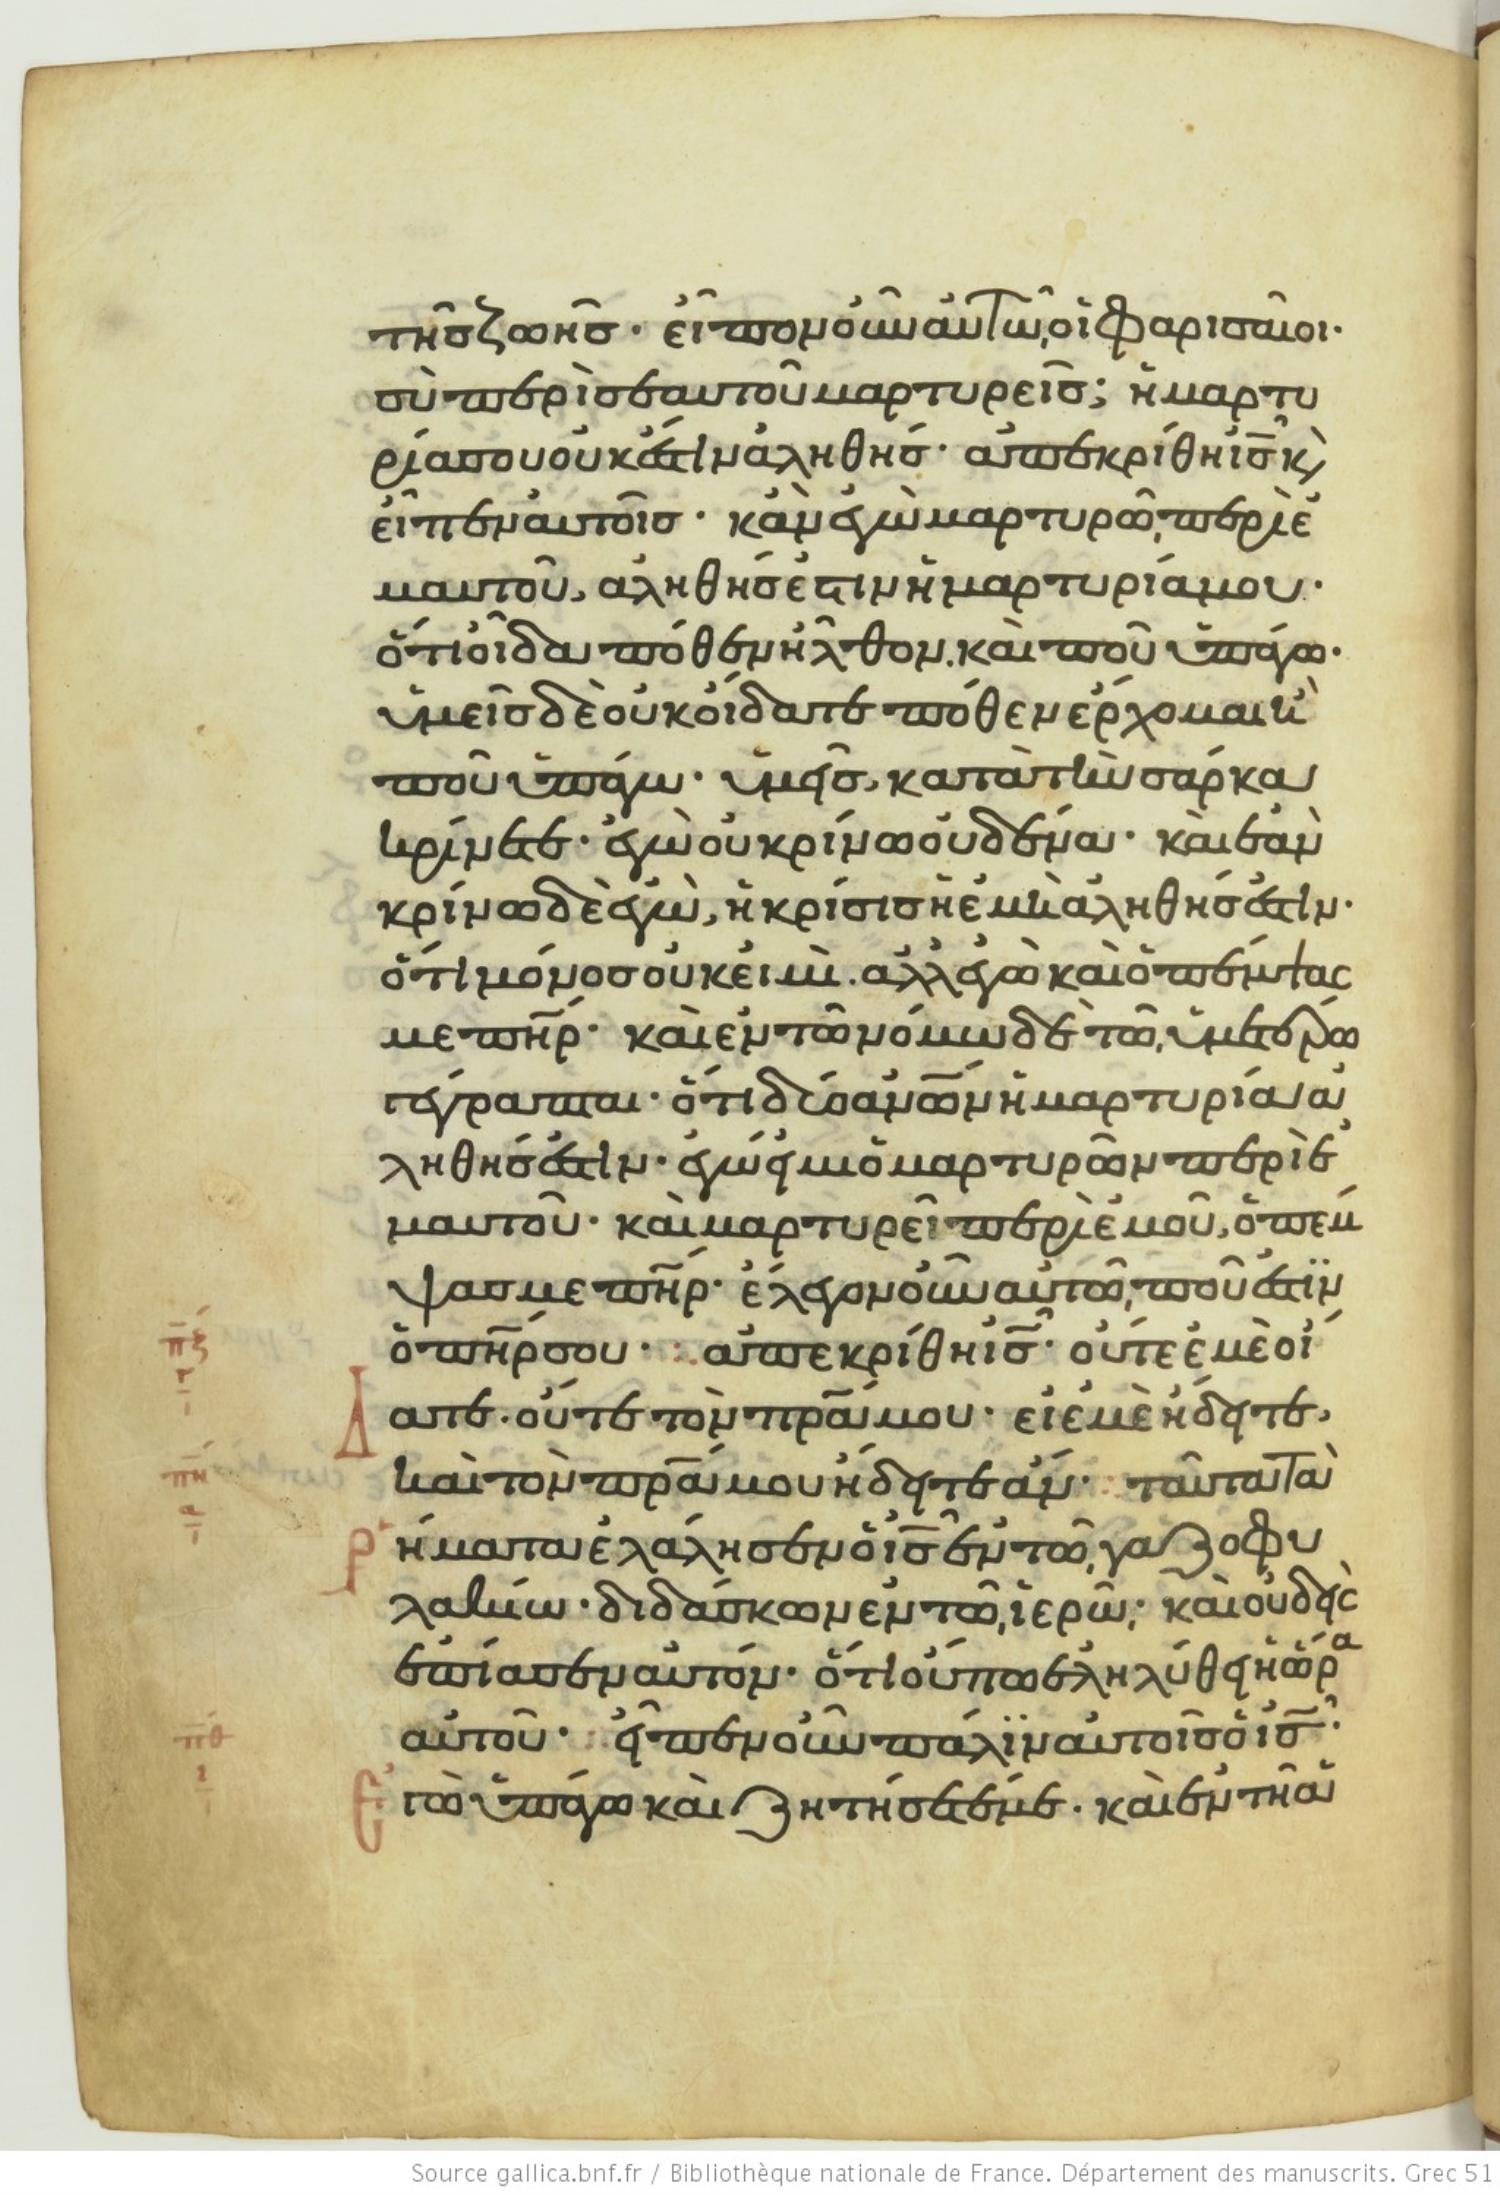 τῆς ζωῆς· εἶπον οὖν αὐτῶ, οἱ φαρισαῖοι·
σὺ περὶ σεαυτοῦ μαρτυρεῖς; ἡ μαρτυ
ρία σου οὐκ ἔστιν ἀληθής· ἀπεκρίθη ις̅ κ̀
εἶπεν αὐτοῖς· κἂν ἐγὼ μαρτυρῶ, περὶ ἐ
μαυτοῦ, ἀληθής ἐστιν ἡ μαρτυρία μου·
ὅτι οἶδα πόθεν ἦλθον, καὶ ποῦ ὑπάγω·
ὑμεῖς δὲ οὐκ οἴδατε πόθεν ἔρχομαι κ̀
ποῦ ὑπάγω· ὑμεῖς, κατὰ τὴν σάρκα
κρίνετε· ἐγὼ οὐ κρίνω οὐδένα· καὶ ἐὰν
κρίνω δὲ ἐγὼ, ἡ κρίσις ἡ ἐμὴ ἀληθής ἐστιν·
ὅτι μόνος οὐκ εἰμὶ. ἀλλ ἐγὼ καὶ ὁ πέμψας
με πη̅ρ· καὶ ἐν τῶ νόμω δὲ τῶ, ὑμετέρω
γέγραπται· ὅτι δύο ἀνω̅ν ἡ μαρτυρία ἀ
ληθής ἐστιν· ἐγώ εἰμι ὁ μαρτυρῶν περὶ ἐ
μαυτοῦ· καὶ μαρτυρεῖ περὶ ἐμοῦ, ὁ πέμ
ψας με πη̅ρ· ἔλεγον οὖν αὐτῶ, ποῦ ἐστϊν
ὁ πη̅ρ σου· ἀπεκρίθη ις̅· οὔτε ἐμὲ οἴ
Δατε. οὔτε τὸν πρ̅α μου· εἰ ἐμὲ ἤδειτε,
καὶ τὸν πρ̅α μου ἤδειτε ἄν· ταῦτα τὰ
Ρήματα ἐλάλησεν ὁ ις̅ ἐν τῶ, γαζοφυ
λακίω· διδάσκων ἐν τῶ, ἱερῶ; καὶ οὐδεὶς
ἐπίασεν αὐτόν· ὅτι οὔπω ἐληλύθει ἡ ὥρα
αὐτοῦ· εἶπεν οὖν πάλϊν αὐτοῖς ὁ ις̅·
Ἐγὼ ὑπάγω καὶ ζητήσετέ με. καὶ ἐν τῆ ἁ
πζ
γ
πη
α
πθ
ι